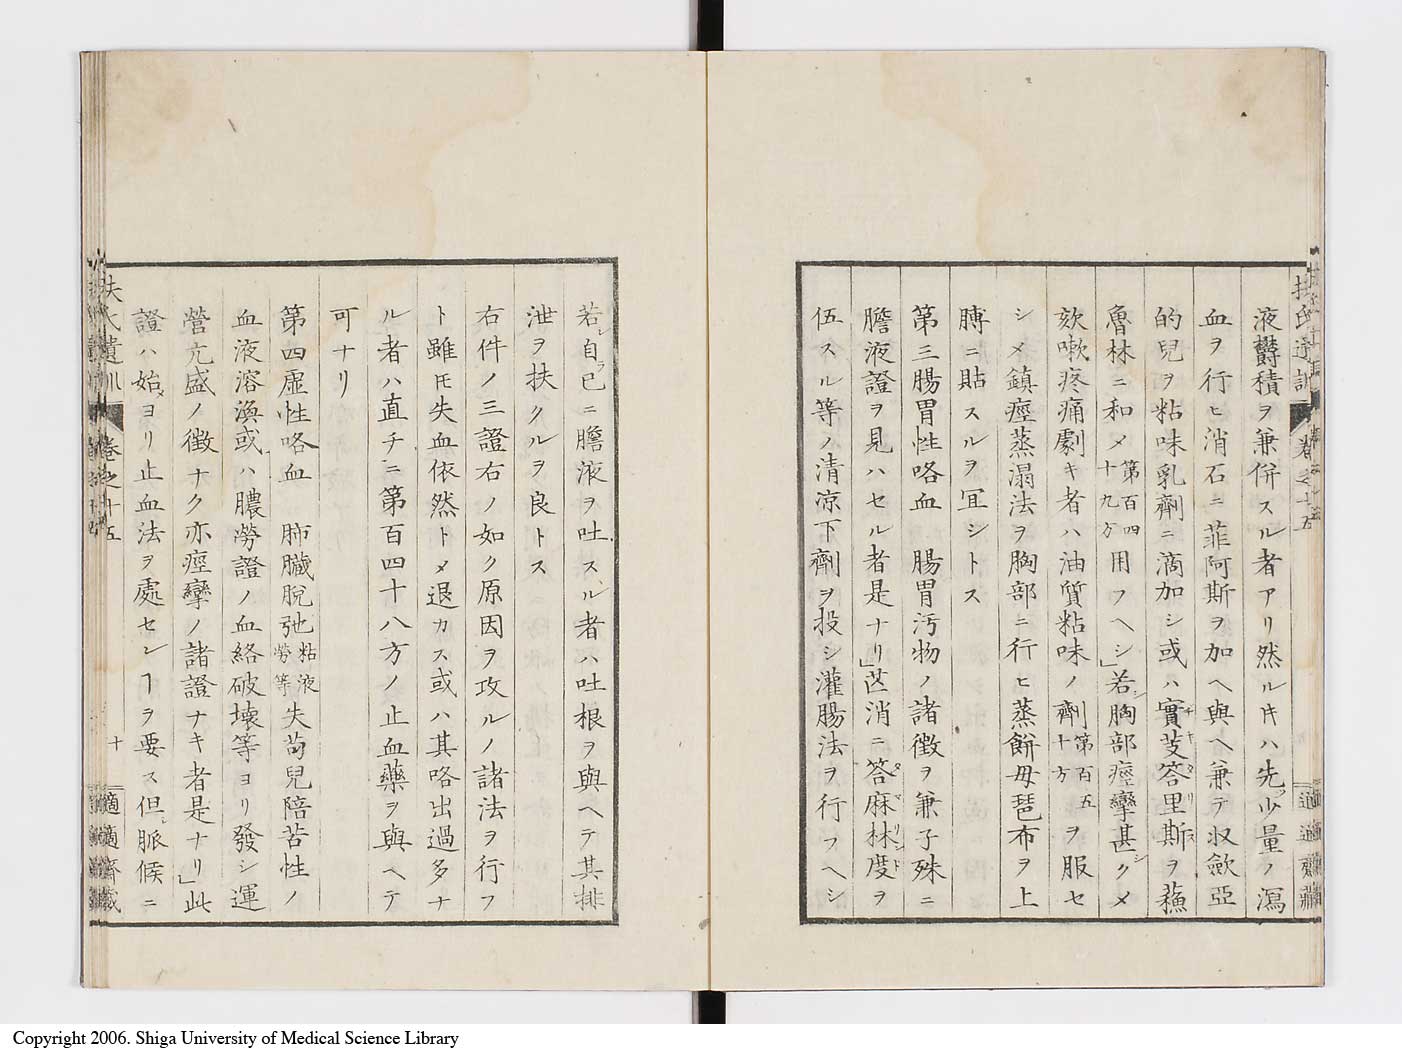 扶氏遺訓
卷之十五
適適齋藏
液欝積ヲ兼併スル者アリ然ルトキハ先ツ少量ノ瀉
血ヲ行ヒ消石ニ菲阿斯ヲ加ヘ與ヘ兼テ収斂亞
的兒ヲ粘味乳劑ニ滴加シ或ハ實芰答里斯ヲ蘓
魯林ニ和メ第百四十九方用フヘシ」若シ胸部痙攣甚シクメ
欬嗽疼痛劇キ者ハ油質粘味ノ劑第百五十方ヲ服セ
シメ鎮痙蒸溻法ヲ胸部ニ行ヒ蒸餅毋琶布ヲ上
膊ニ貼スルヲ冝シトス
第三腸胃性咯血 腸胃汚物ノ諸徴ヲ兼子殊ニ
膽液證ヲ見ハセル者是ナリ」芒消ニ答麻林度ヲ
伍スル等ノ清凉下劑ヲ投シ灌腸法ヲ行フヘシ
若シ自ラ己ニ膽液ヲ吐スル者ハ吐根ヲ與ヘテ其排
泄ヲ扶クルヲ良トス
右件ノ三證右ノ如ク原因ヲ攻ルノ諸法ヲ行フ
ト雖トモ失血依然トメ退カス或ハ其咯出過多ナ
ル者ハ直チニ第百四十八方ノ止血藥ヲ與ヘテ
可ナリ
第四虚性咯血 肺臓脫弛粘液勞等失苟兒陪苦性ノ
血液溶渙或ハ膿勞證ノ血絡破壊等ヨリ發シ運
營亢盛ノ徴ナク亦痙攣ノ諸證ナキ者是ナリ」此
證ハ始メヨリ止血法ヲ處センコトヲ要ス但シ脈候ニ
扶氏遺訓
卷之十五
十
適適齋藏
Copyright 2006. Shiga University of Medical Science Library